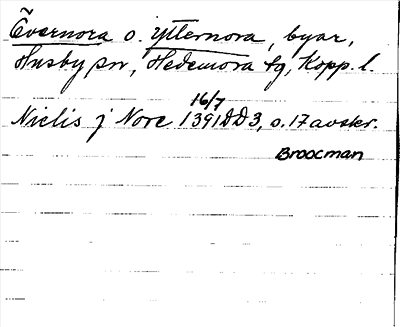 Övernora o. Ytternora, byar,
Husby sn, Hedemora tg, Kopp. l.
16/7
Niclis j Nore 1391 DD3, o. 17 avskr.
Broocman